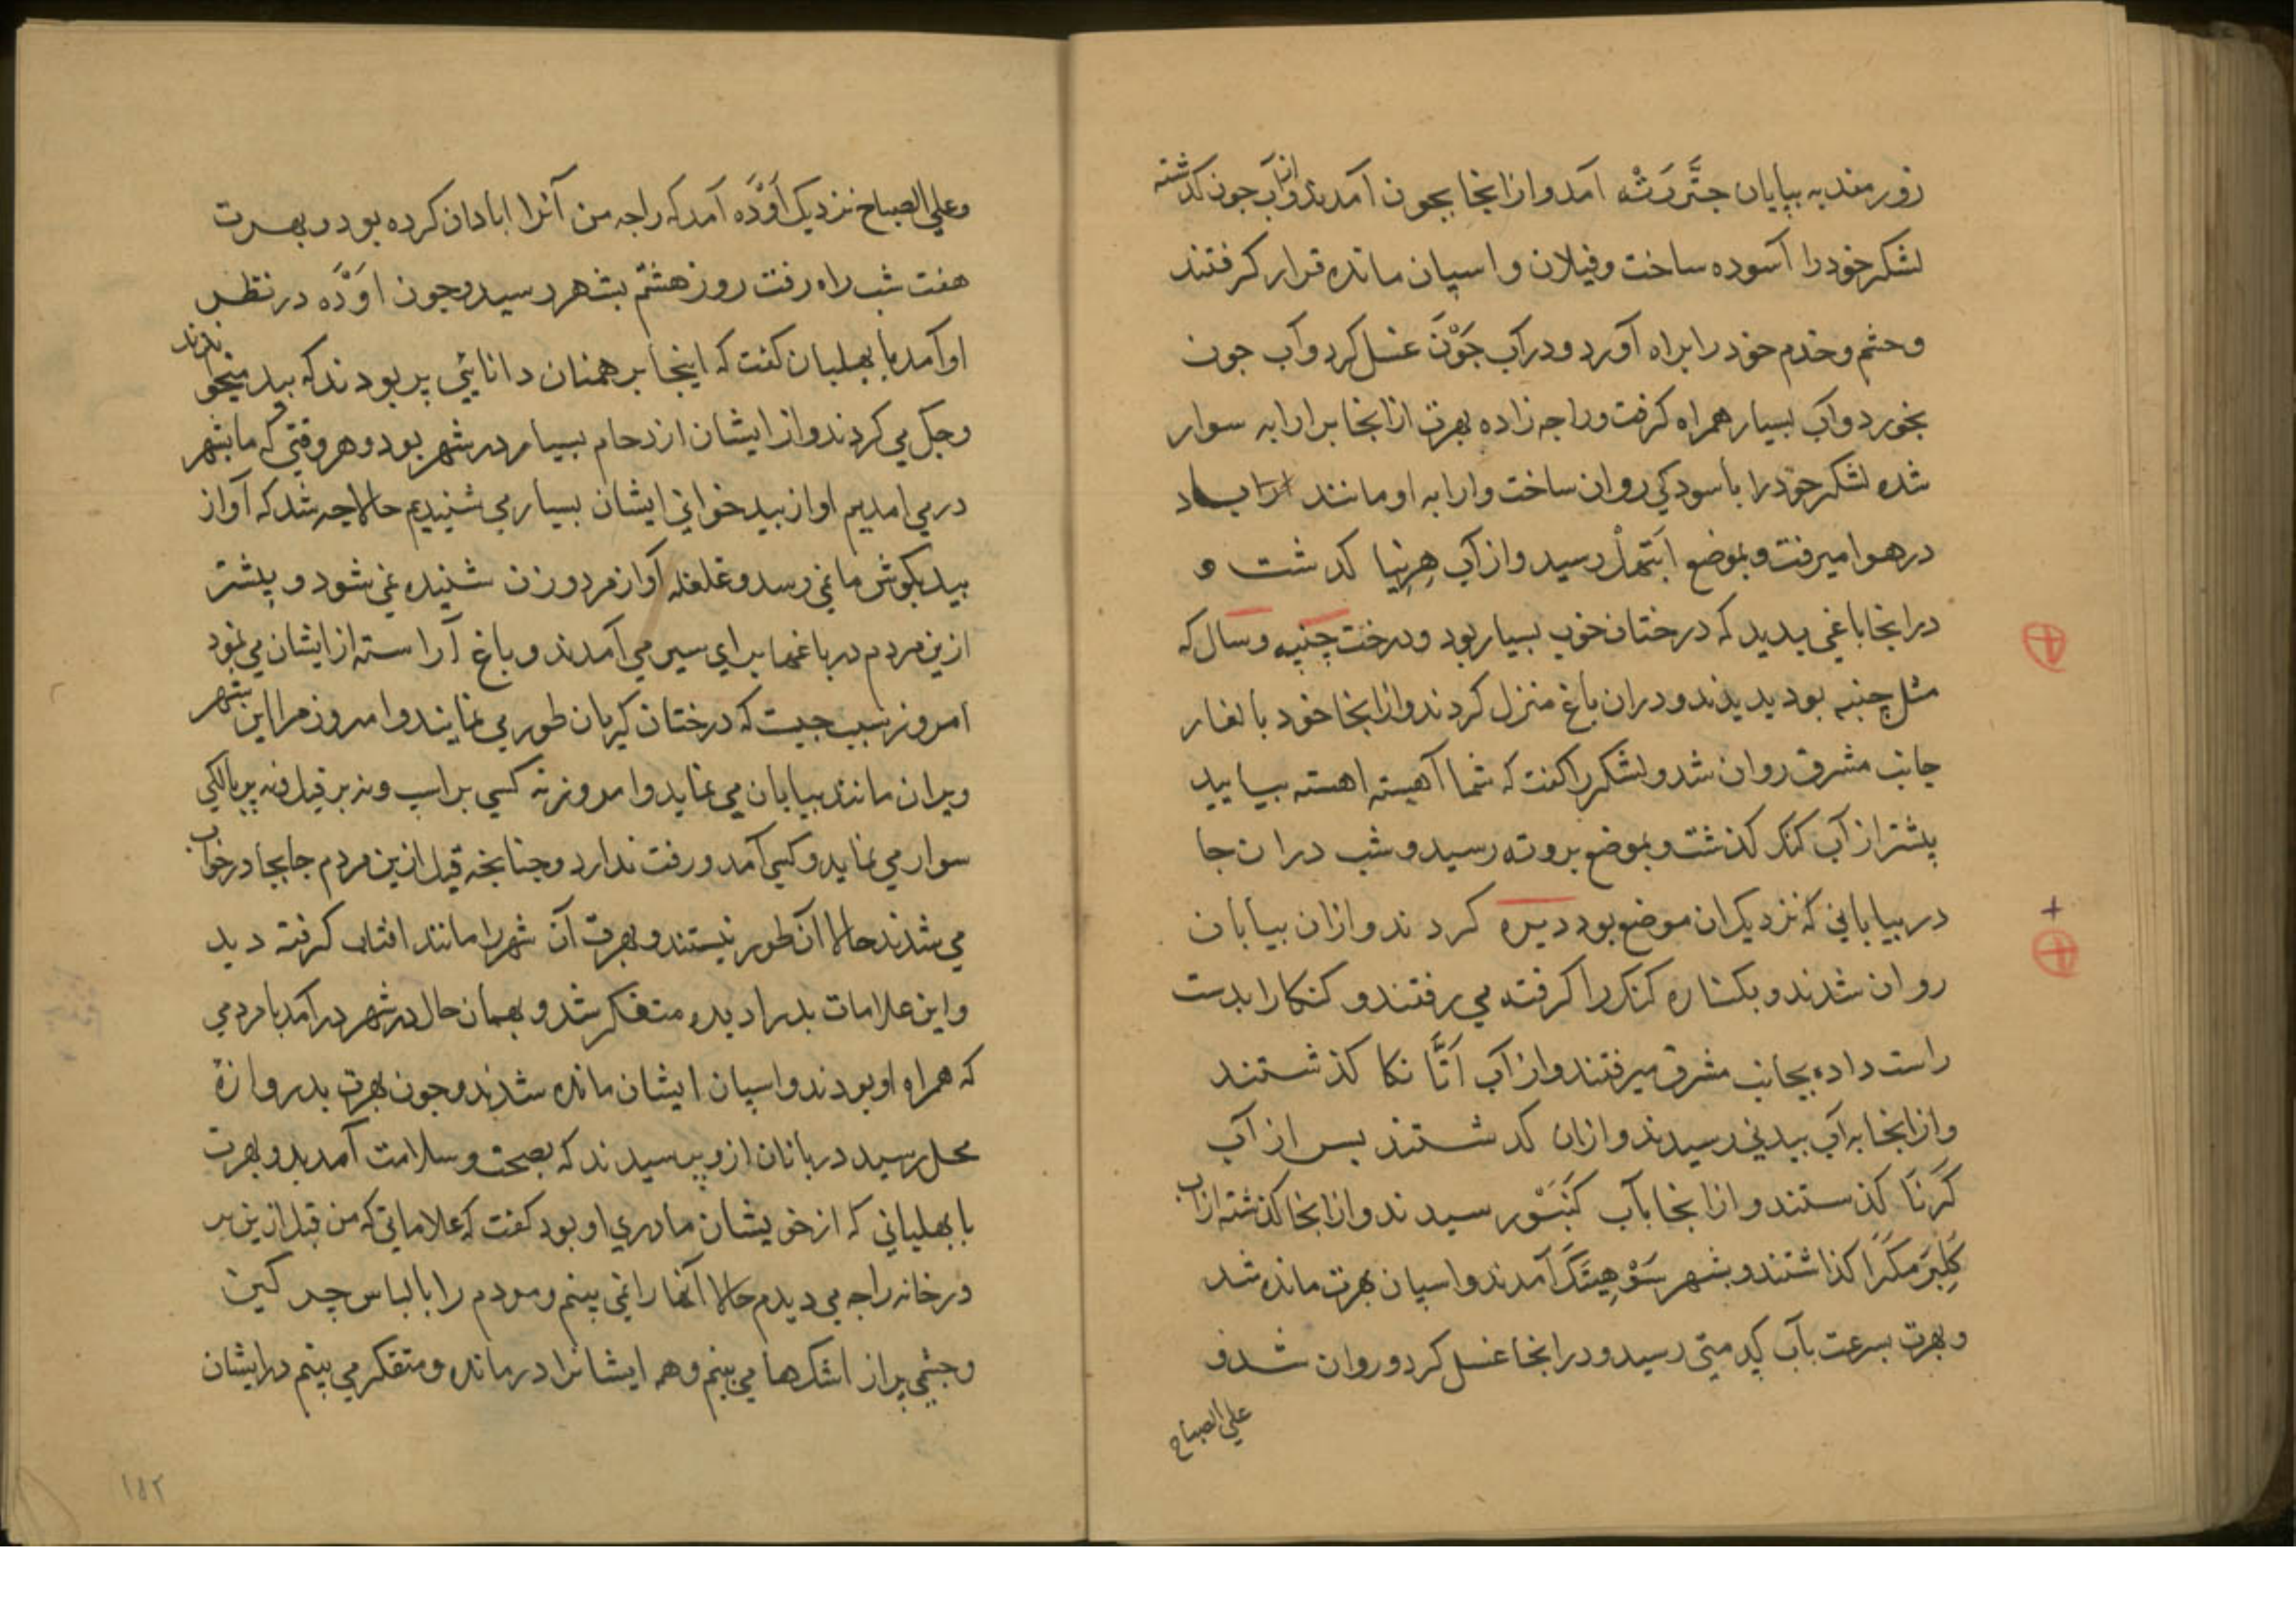 زورمند به بیابان جتَّررَتْه آمد و از اینجا بجون آمدند و از آب جون کذشته
لشکر خود را آسوده ساخت و فیلان و اسپان مانده قرار کرفتند
و حشم و خدم خود را براه آورد و در آب جَوْنَ غسل کرد و آب جون
بخورد و آب بسیار همراه کرفت و راجه زاده بهرت از انجا بر ارابه سوار
شده لشکر خود را باسودکی روان ساخت و ارابه او مانند
در هوا میرفت و بموضع اَبَتهلْ رسید و از آب هِرنیا کدشت و
در انجا باغی بدید که درختان خوب بسیار بود و درخت چنپه و سال که
مثل چنبه بود بدیدند و دران باغ منزل کردند و از انجا خود بالغار
جانب مشرق روان شد و لشکر را کفت که شما آهسته اهسته بیایید
پیشتر از آب کنک کذشت و بموضع بروته رسید و شب دران جا
در بیابانی که نزدیک ان موضع بود دیره کردند و ازان بیابان
روان شدند و بکناره کنک را کرفته می رفتند و کنکا را بدست
راست داده بجانب مشرق میرفتند و از آب اَتَّا نکا کذشتند
و از انجا به آب بیدنی رسیدند و ازان کدشتند بس از آب
کَرَنَا کذستند و از انجا بآب کَنَبَسْور رسیدند و از انجا کذشته از آب
کَلِبَرَمکَرَا کذاشتند و بشهر سَوْهِیتَکَ آمدند و اسپان بهرت مانده شد
و بهرت بسرعت بآب کِدمتی رسید و در انجا غسل کرد و روان شد و
علی الصباح
و علی الصباح نزدیک اَوَدَّه آمد که راجه من آنرا ابادان کرده بود و بهرت
هفت شب راه رفت روز هشتم بشهر رسید و جون اوَدَّه در نظر
او آمد با بهلبان کفت که اینجا برهمنان دانایی پر بودند که بید میخواندند
و جک می کردند و از ایشان ازدحام بسیار در شهر بود و هر وقتی که ما بشهر
در می امدیم اواز بید خوانی ایشان بسیار می شنیدیم حالا چه شد که آواز
بید بکوش ما نمی رسد و غلغله آواز مرد و زن شنیده نمی شود و پیشتر
ازین مردم در باغها برای سیر می آمدند و باغ آراسته از ایشان می نمود
امروز سبب جیست که درختان کریان طور می نمایند و امروز مرا این شهر
ویران مانند بیابان می نماید و امروز نه کسی بر اسپ و نه بر فیل و نه بر پالکی
سوار می نماید و کسی آمد و رفت ندارد و جنانجه قبل ازین مردم جابجا در خواب
می شدند حالا آن طور نیستند و بهرت آن شهر را مانند افتاب کرفته دید
و این علامات بد را دیده متفکر شد و بهمان حال در شهر در آمد با مردمی
که همراه او بودند و اسپان ایشان مانده شدند و جون بهرت بدروازهٔ
محل رسید دربانان ازو پرسیدند که بصحت و سلامت آمدید و بهرت
با بهلیانی که از خویشان مادری او بود کفت که علاماتی که من قبل ازین بر
در خانه راجه می دیدم حالا آنها را نمی بینم و مردم را با لباس چرکین
و چشمی پر از اشکها می بینم و همه ایشانرا در مانده و متفکر می بینم در ایشان
۱۵۲